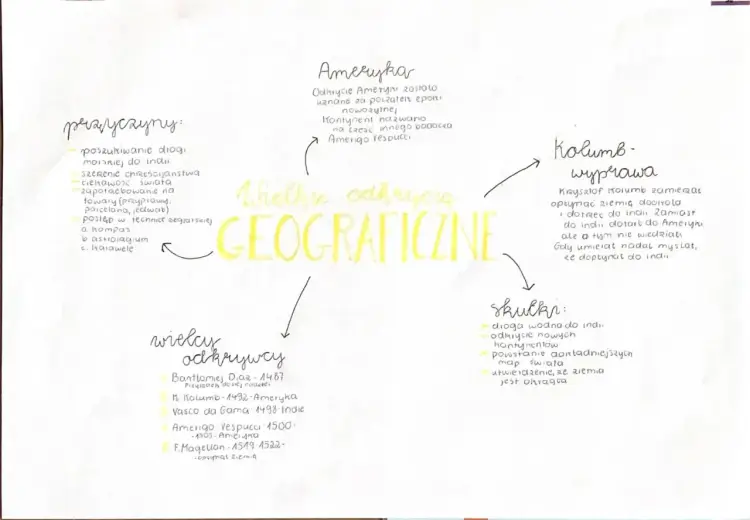 Wielkie odkrycia
GEOGRAFICZNE
Ameryka
Odkrycie Ameryki zostało
uznane za początek epoki
nowożytnej
Kontynent nazwano
na cześć innego badacza
Amerigo Vespucci
przyczyny:
poszukiwanie drogi
morskiej do Indii
szerzenie chrześcijaństwa
ciekawość świata
zapotrzebowanie na
towary (przyprawy,
porcelana, jedwab)
postęp w technice żeglarskiej
a. kompas
b. astrolabium
c. karawele
Kolumb-
wyprawa
Krzysztof Kolumb zamierzał
opłynąć ziemię dookoła
i dotrzeć do Indii. Zamiast
do Indii dotarł do Ameryki
ale o tym nie wiedział.
Gdy umierał nadal myślał,
że dopłynął do Indii
skutki:
droga wodna do Indii
odkrycie nowych
kontynentów
powstanie dokładniejszych
map świata
utwierdzenie, że ziemia
jest okrągła
wielcy
odkrywcy
Bartłomiej Diaz - 1487
Przylądek Dobrej Nadziei
K. Kolumb - 1492 - Ameryka
Vasco da Gama 1498 - Indie
Amerigo Vespucci 1500-
-1503 - Ameryka
F. Magellan - 1519-1522-